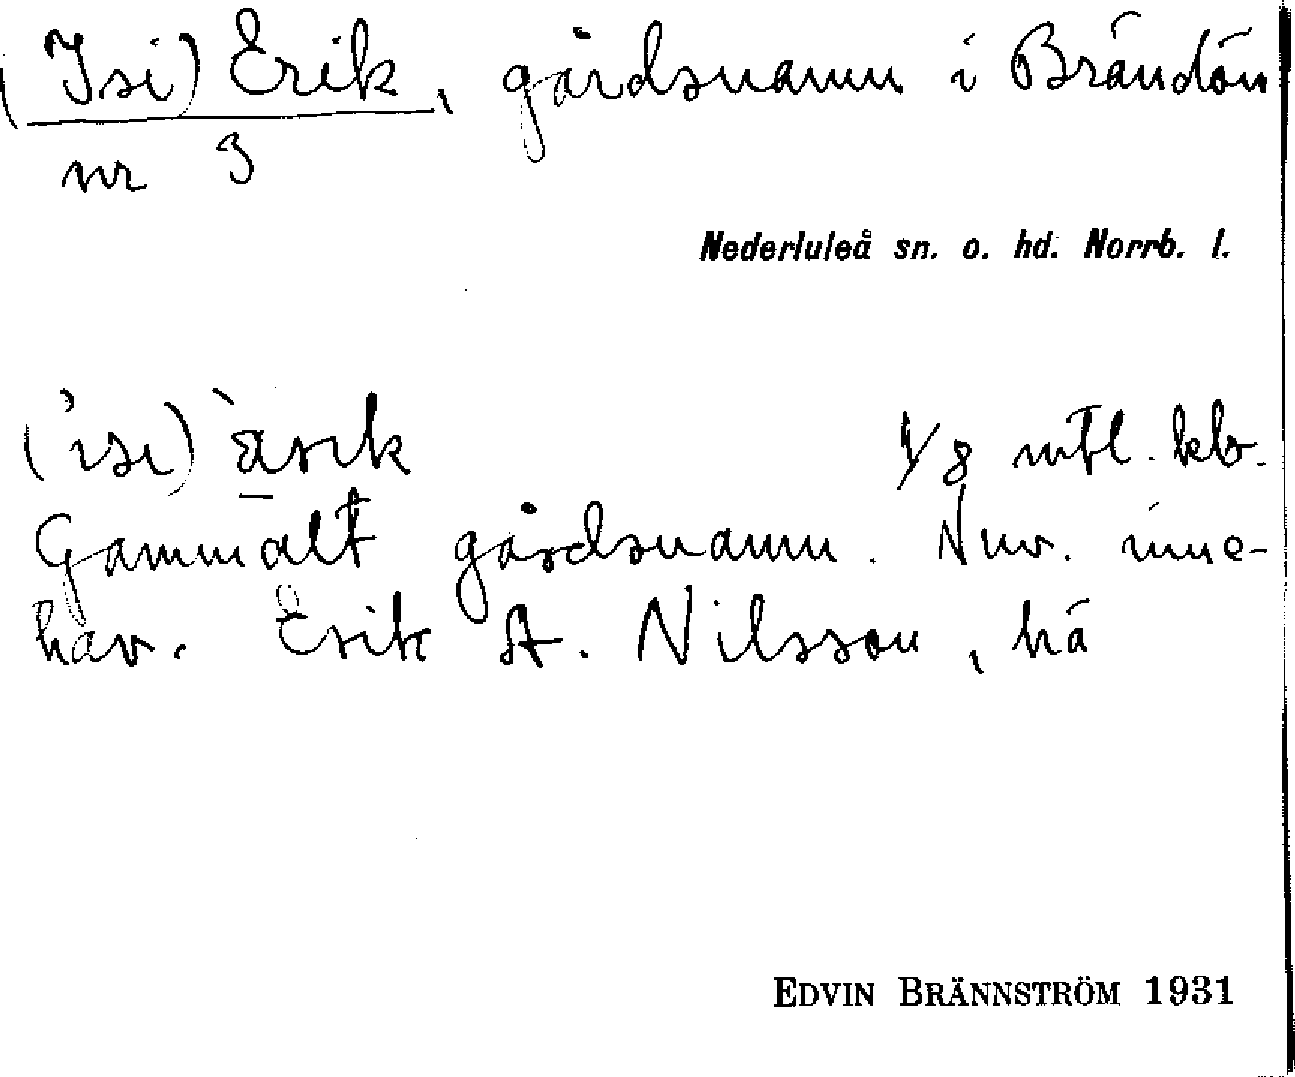 (Isi) Erik, gårdsnamn i Brändön
nr 3
Nederluleå sn. o. hd. Norrb. l.
(ˈisi) ˋärik 1/8 mtl. kb.
Gammalt gårdsnamn. Nuv. inne-
hav. Erik A. Nilsson, hä
EDVIN BRÄNNSTRÖM 1931